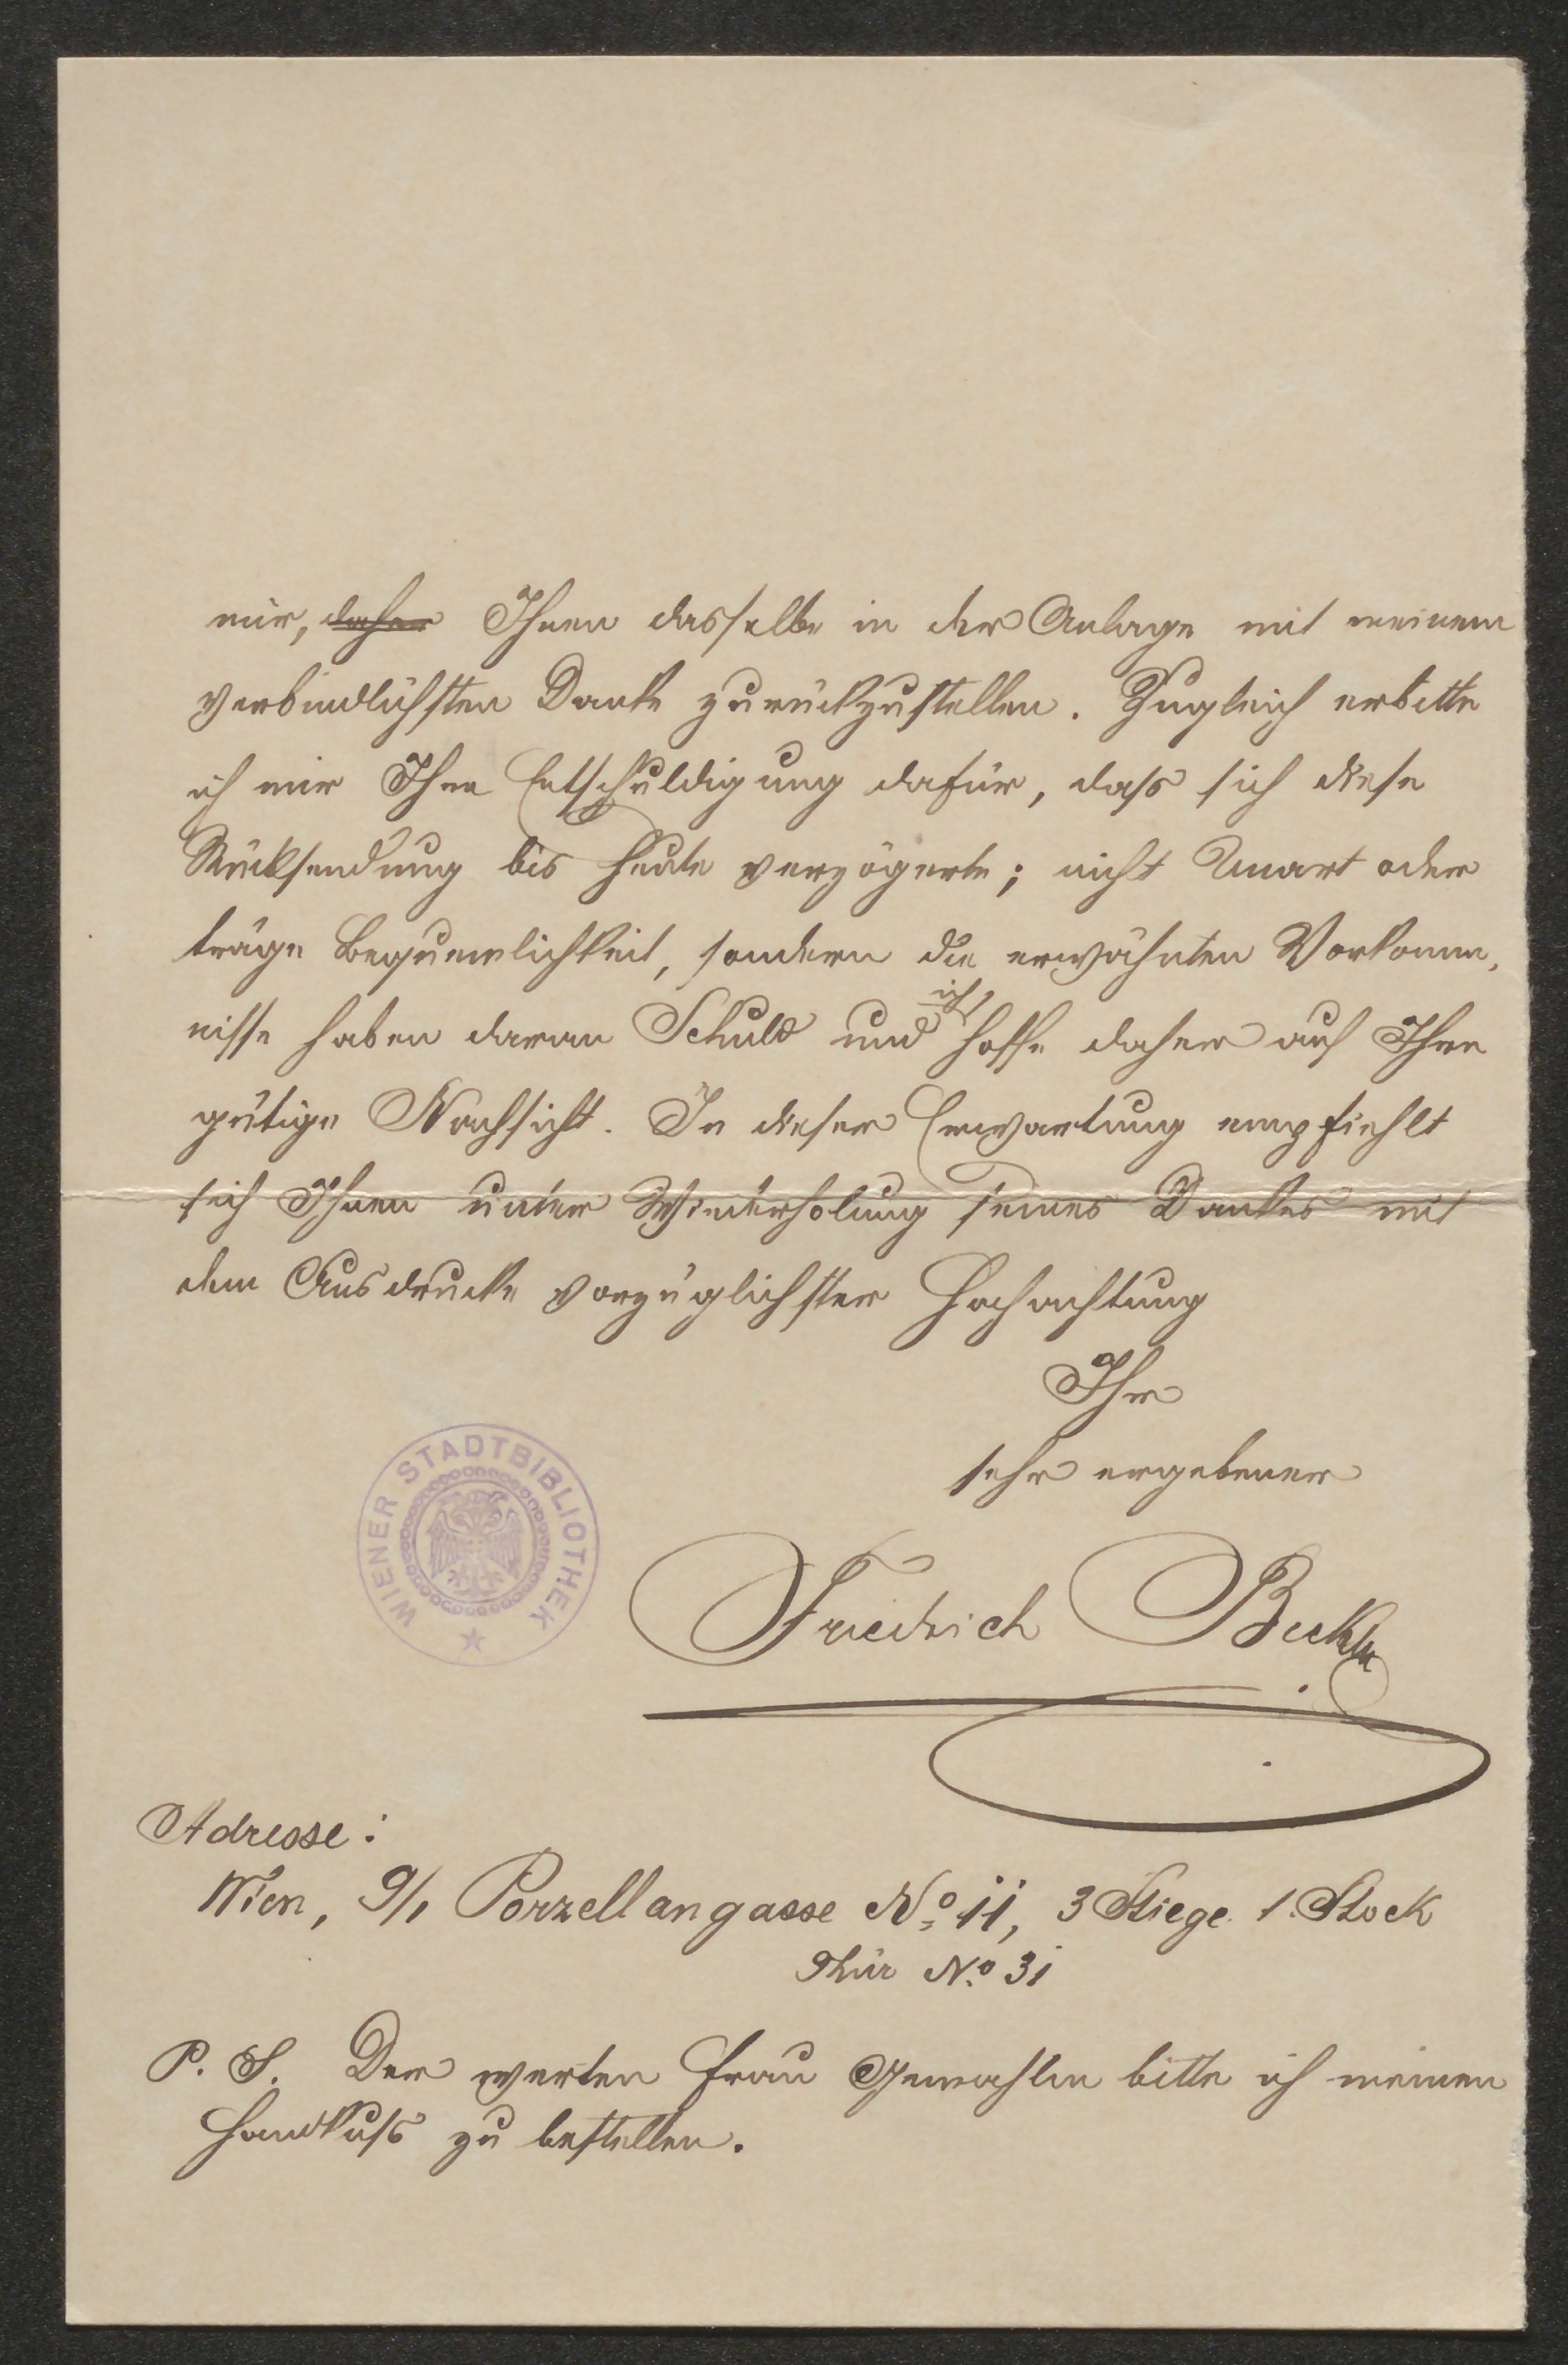 mir, daher Ihnen dasselbe in der Anlage mit meinem
verbindlichsten Danke zurückzustellen. Zugleich erbitte
ich mir Ihre Entschuldigung dafür, dass sich diese
Rücksendung bis heute verzögerte; nicht Unart oder
träge Bequemlichkeit, sondern die erwähnten Vorkomm-
nisse haben daran Schuld und ich hoffe daher auf Ihre
gütige Nachsicht. In dieser Erwartung empfiehlt
sich Ihnen unter Wiederholung seines Dankes mit
dem Ausdrucke vorzüglichster Hochachtung
Ihr
sehr ergebener
Friedrich
WIENER STADTBIBLIOTHEK
Adresse:
Wien, 9/1 Porzellangasse No 11, 3 Stiege 1. Stock
Thür No 31
P. S. Der werten Frau Gemahlin bitte ich meinen
Handkuss zu bestellen.